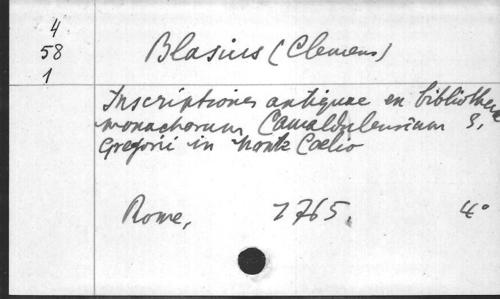 4
58
1
Blasius (Clemens)
Inscriptiones antiquae ex bibliotheca
monachorum Camaldulensium S.
Gregorii in Monte Coelio
Rome, 1765. 4°